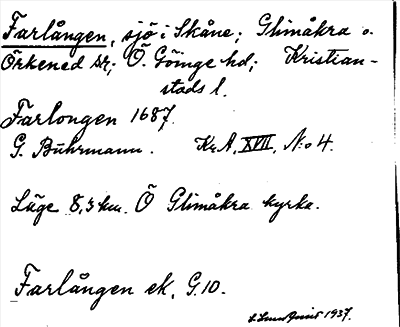 Farlången, sjö i Skåne; Glimåkra o.
Örkened sr; Ö. Göinge hd; Kristian-
stads l.
Farlongen 1687.
G. Buhrmann. Kr.A, XVII, No 4.
Läge 8,3 km. Ö Glimåkra kyrka.
Farlången ek. G.10.
1937.